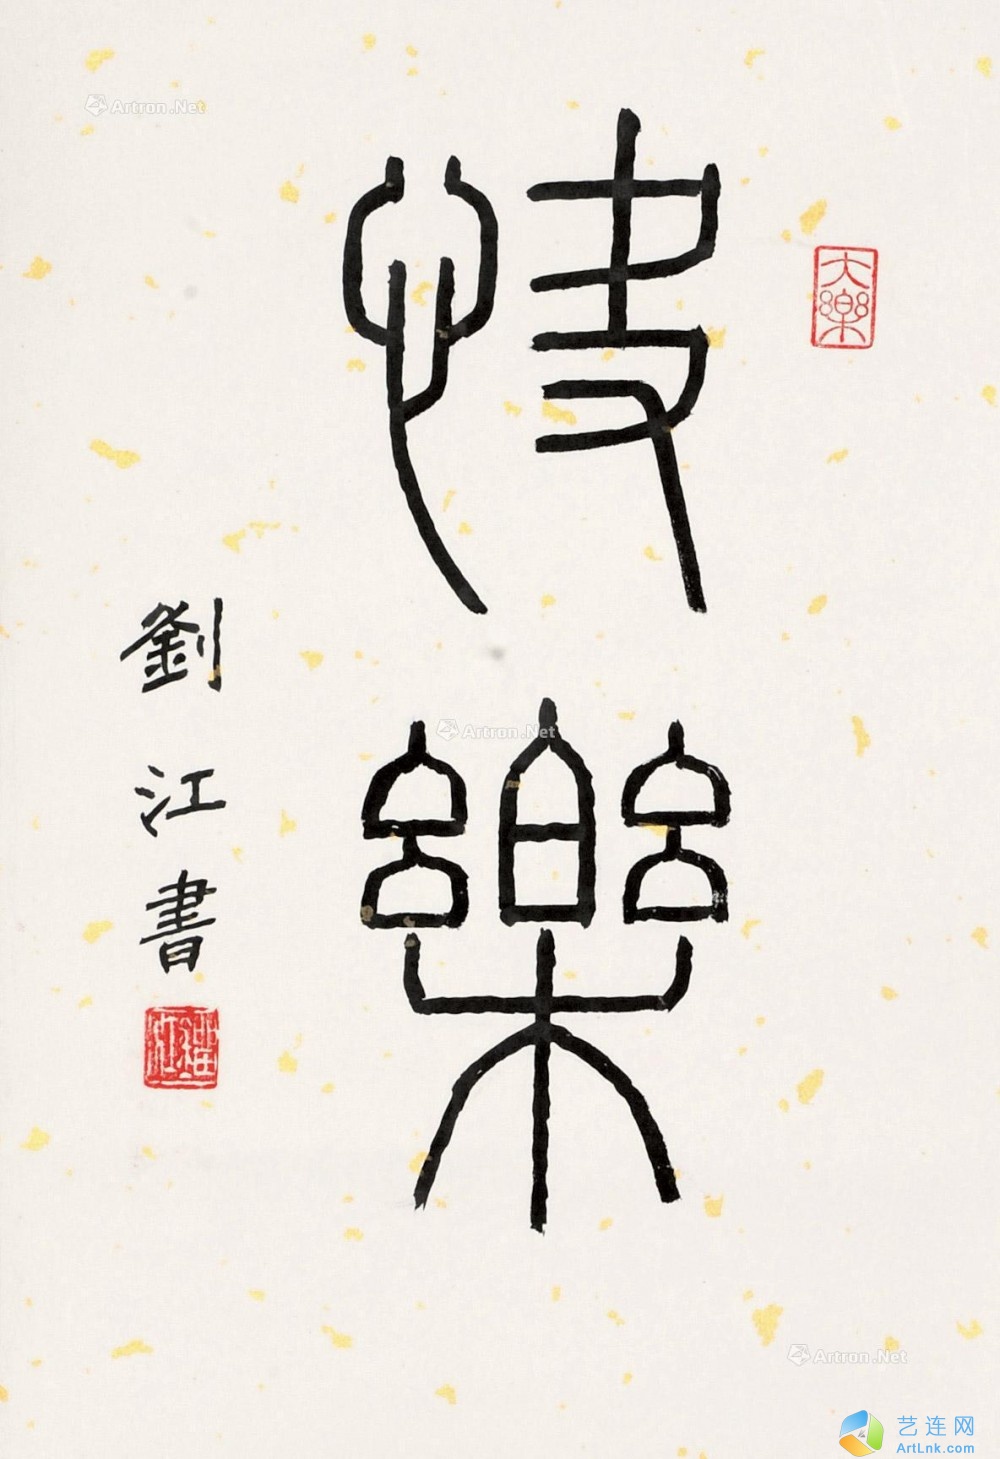 快樂
大樂
劉江書
劉江
Artron.Net
Artron.Net
Artron.Net
艺连网
ArtLnk.com